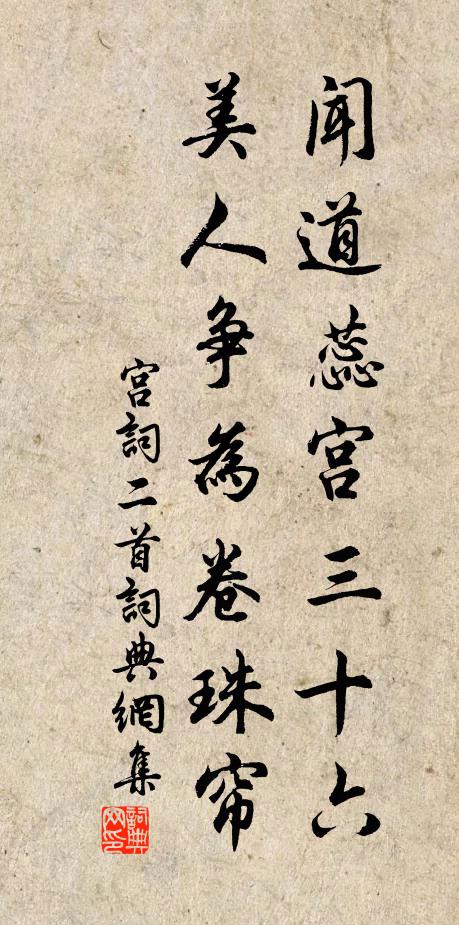 闻道蕊宫三十六
美人争為卷珠帘
宫詞二首詞典網集
詞典网印